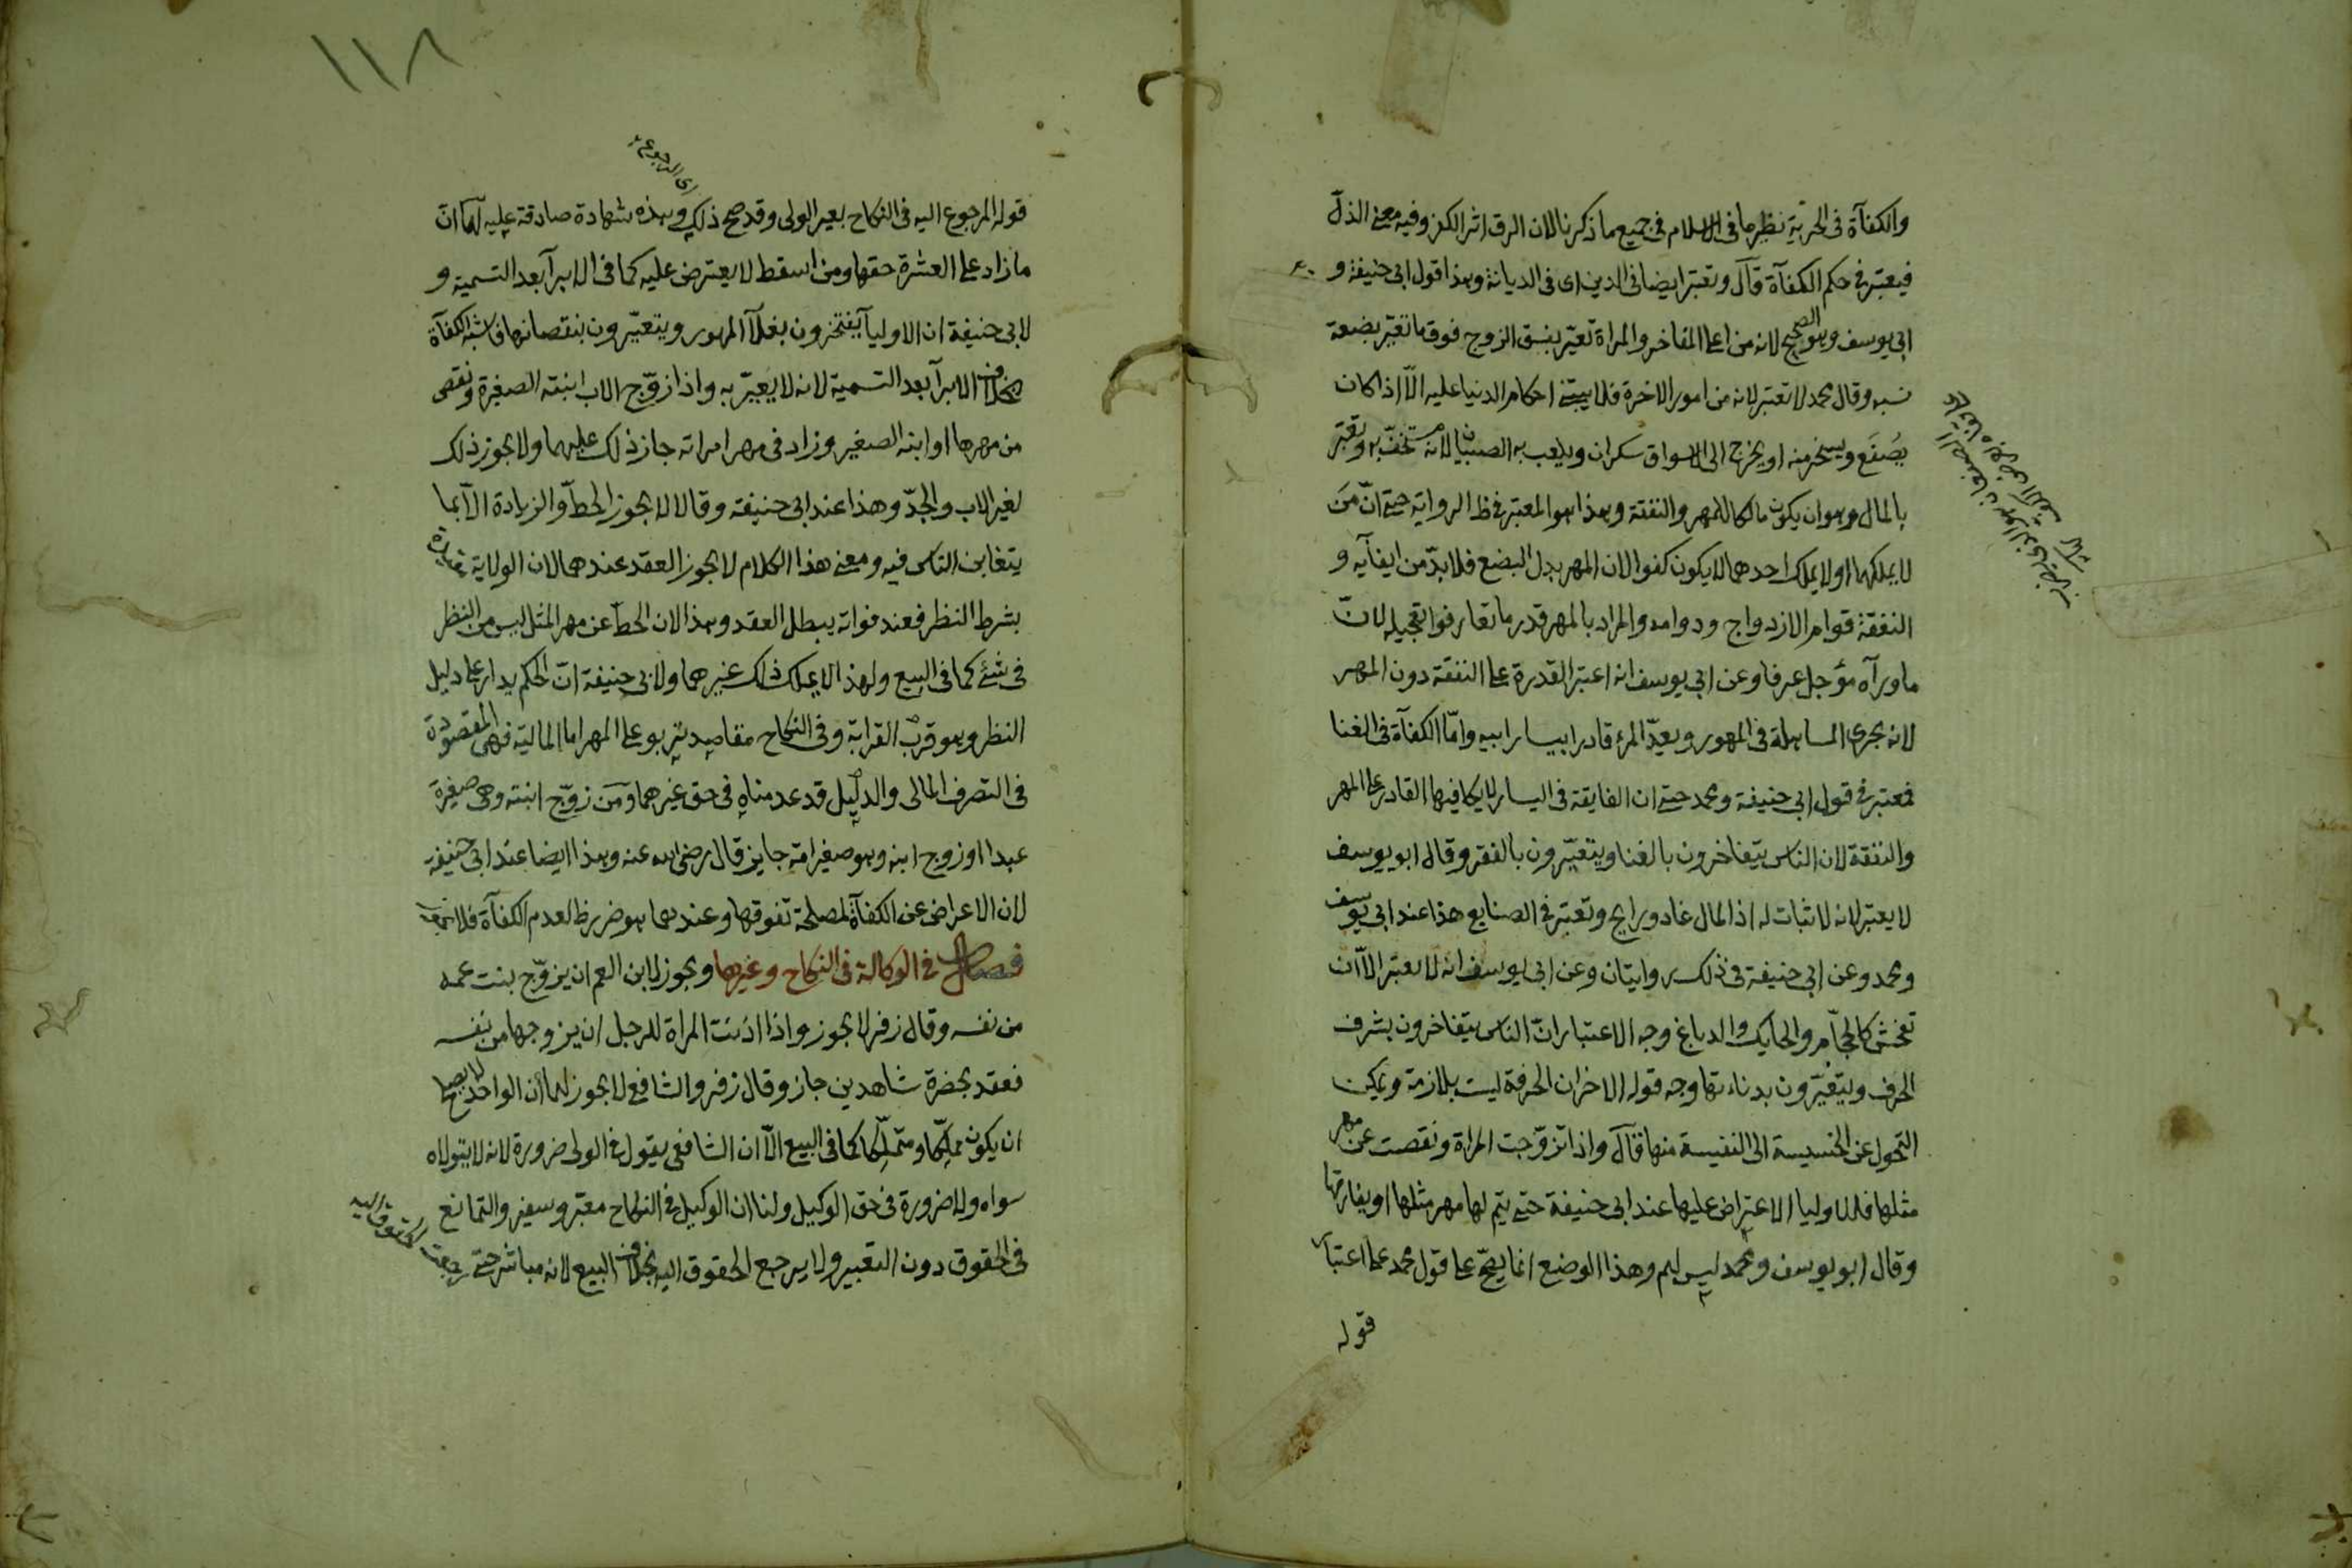 والكفآة فى الحرية نظيرها فى الاسلام فى جميع ما ذكرنا لان الرق اثر الكفر وفيه معنى الذل
فيعتبر فى حكم الكفآة قال وتعتبر ايضا فى الدين اى فى الديانة وهذا قول ابى حنيفة و
ابى يوسف وهو الصحيح لانه من اعلى المفاخر والمراة تعيّر بفسق الزوج فوق ما تعيّر بضعة
نسبه وقال محمد لا تعتبر لانه من امور الاخرة فلا يبتنى احكام الدنيا عليه الّا اذا كان
يُصفَع ويسخر منه او يخرج الى الاسواق سكران ويلعب به الصبيان لانه مستخفّ به وتعتبر
بالمال وهو ان يكون مالكا للمهر والنفقة وهذا هو المعتبر فى ظ الرواية حتى انّ مَن
لا يملكهما او لا يملك احدهما لا يكون كفوا لان المهر بدل البضع فلا بدّ من ايفآيه و
النفقة قوام الازدواج ودوامه والمراد بالمهر قدر ما تعارفوا تعجيله لانّ
ما ورآه مؤجل عرفا وعن ابى يوسف انه اعتبر القدرة على النفقة دون المهر
لانه يجرى المساهلة فى المهور ويعدّ المرء قادرا بيسار ابيه وامّا الكفآة فى الغنا
فمعتبر فى قول ابى حنيفة ومحمد حتى ان الفايقة فى اليسار لا يكافيها القادر على المهر
والنفقة لان الناس يتفاخرون بالغنا ويتعيّرون بالفقر وقال ابو يوسف
لا يعتبر لانه لا ثبات له اذ المال غاد ورايح وتعتبر فى الصنايع هذا عند ابى يوسف
ومحمد وعن ابى حنيفة فى ذلك روايتان وعن ابى يوسف انه لا يعتبر الّا ان
تفحش كالحجّام والحايك والدباغ وجه الاعتبار انّ الناس يتفاخرون بشرف
الحرف ويتعيّرون بدناءتها وجه قوله الاخر ان الحرفة ليست بلازمة ويمكن
التحول عن الخسيسة الى النفيسة منها قال واذا تزوّجت المراة ونقصت عن مهر
مثلها فللاوليا الاعتراض عليها عند ابى حنيفة حتى يتم لها مهر مثلها او يفارقها
وقال ابو يوسف ومحمد ليس لهم وهذا الوضع انما يصحّ على قول محمد على اعتبار
قوله
١١٨
اى المرجوع
قوله المرجوع اليه فى النكاح بغير الولى وقد صح ذلك وهذه شهادة صادقة عليه لهما ان
ما زاد على العشرة حقها ومن اسقط لا يعترض عليه كما فى الابرآ بعد التسمية و
لابى حنيفة ان الاوليآ يفتخرون بغلآ المهور ويتعيّرون بنقصانها فاشبه الكفآة
بخلاف الابرآ بعد التسمية لانه لا يُعيّر به واذا زوّج الاب ابنته الصغيرة ونقص
من مهرها او ابنه الصغير وزاد فى مهر امراته جاز ذلك عليهما ولا يجوز ذلك
لغير الاب والجدّ وهذا عند ابى حنيفة وقالا لا يجوز الحطّ والزيادة الّا بما
يتغابن الناس فيه ومعنى هذا الكلام لا يجوز العقد عندهما لان الولاية مقيدة
بشرط النظر فعند فواته يبطل العقد وهذا لان الحطّ عن مهر المثل ليس من النظر
فى شئ كما فى البيع ولهذا لا يملك ذلك غيرهما ولابى حنيفة انّ الحكم يدار على دليل
النظر وهو قرب القرابة وفى النكاح مقاصد تربو على المهر اما المالية فهى المقصودة
فى التصرف المالى والدليل قد عدمناه فى حق غيرهما ومَن زوّج ابنته وهى صغيرة
عبدا او زوج ابنه وهو صغير امة جايز قال رضى الله عنه وهذا ايضا عند ابى حنيفة
لان الاعراض عن الكفآة لمصلحة تفوقها وعندهما هو ضرر ظ لعدم الكفآة فلا
فصل فى الوكالة فى النكاح وغيرها ويجوز لابن العم ان يزوّج بنت عمه
من نفسه وقال زفر لا يجوز واذا اذنت المراة للرجل ان يزوجها من نفسه
فعقد بحضرة شاهدين جاز وقال زفر والشافع لا يجوز لهما ان الواحد لا يصلح
ان يكون مملِّكا ومتملّكا كما فى البيع الّا ان الشافعى يقول فى الولى ضرورة لانه لا يتولاه
سواه ولا ضرورة فى حق الوكيل ولنا ان الوكيل فى النكاح معبّر وسفير والتمانع
فى الحقوق دون التعبير ولا يرجع الحقوق اليه بخلاف البيع لانه مباشر حتى رجعت الحقوق اليه